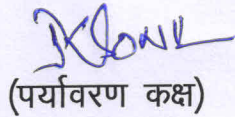 (पर्यावरण कक्ष)